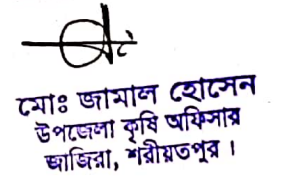 মোঃ জামাল হোসেন
উপজেলা কৃষি অফিসার
জাজিরা, শরীয়তপুর ।